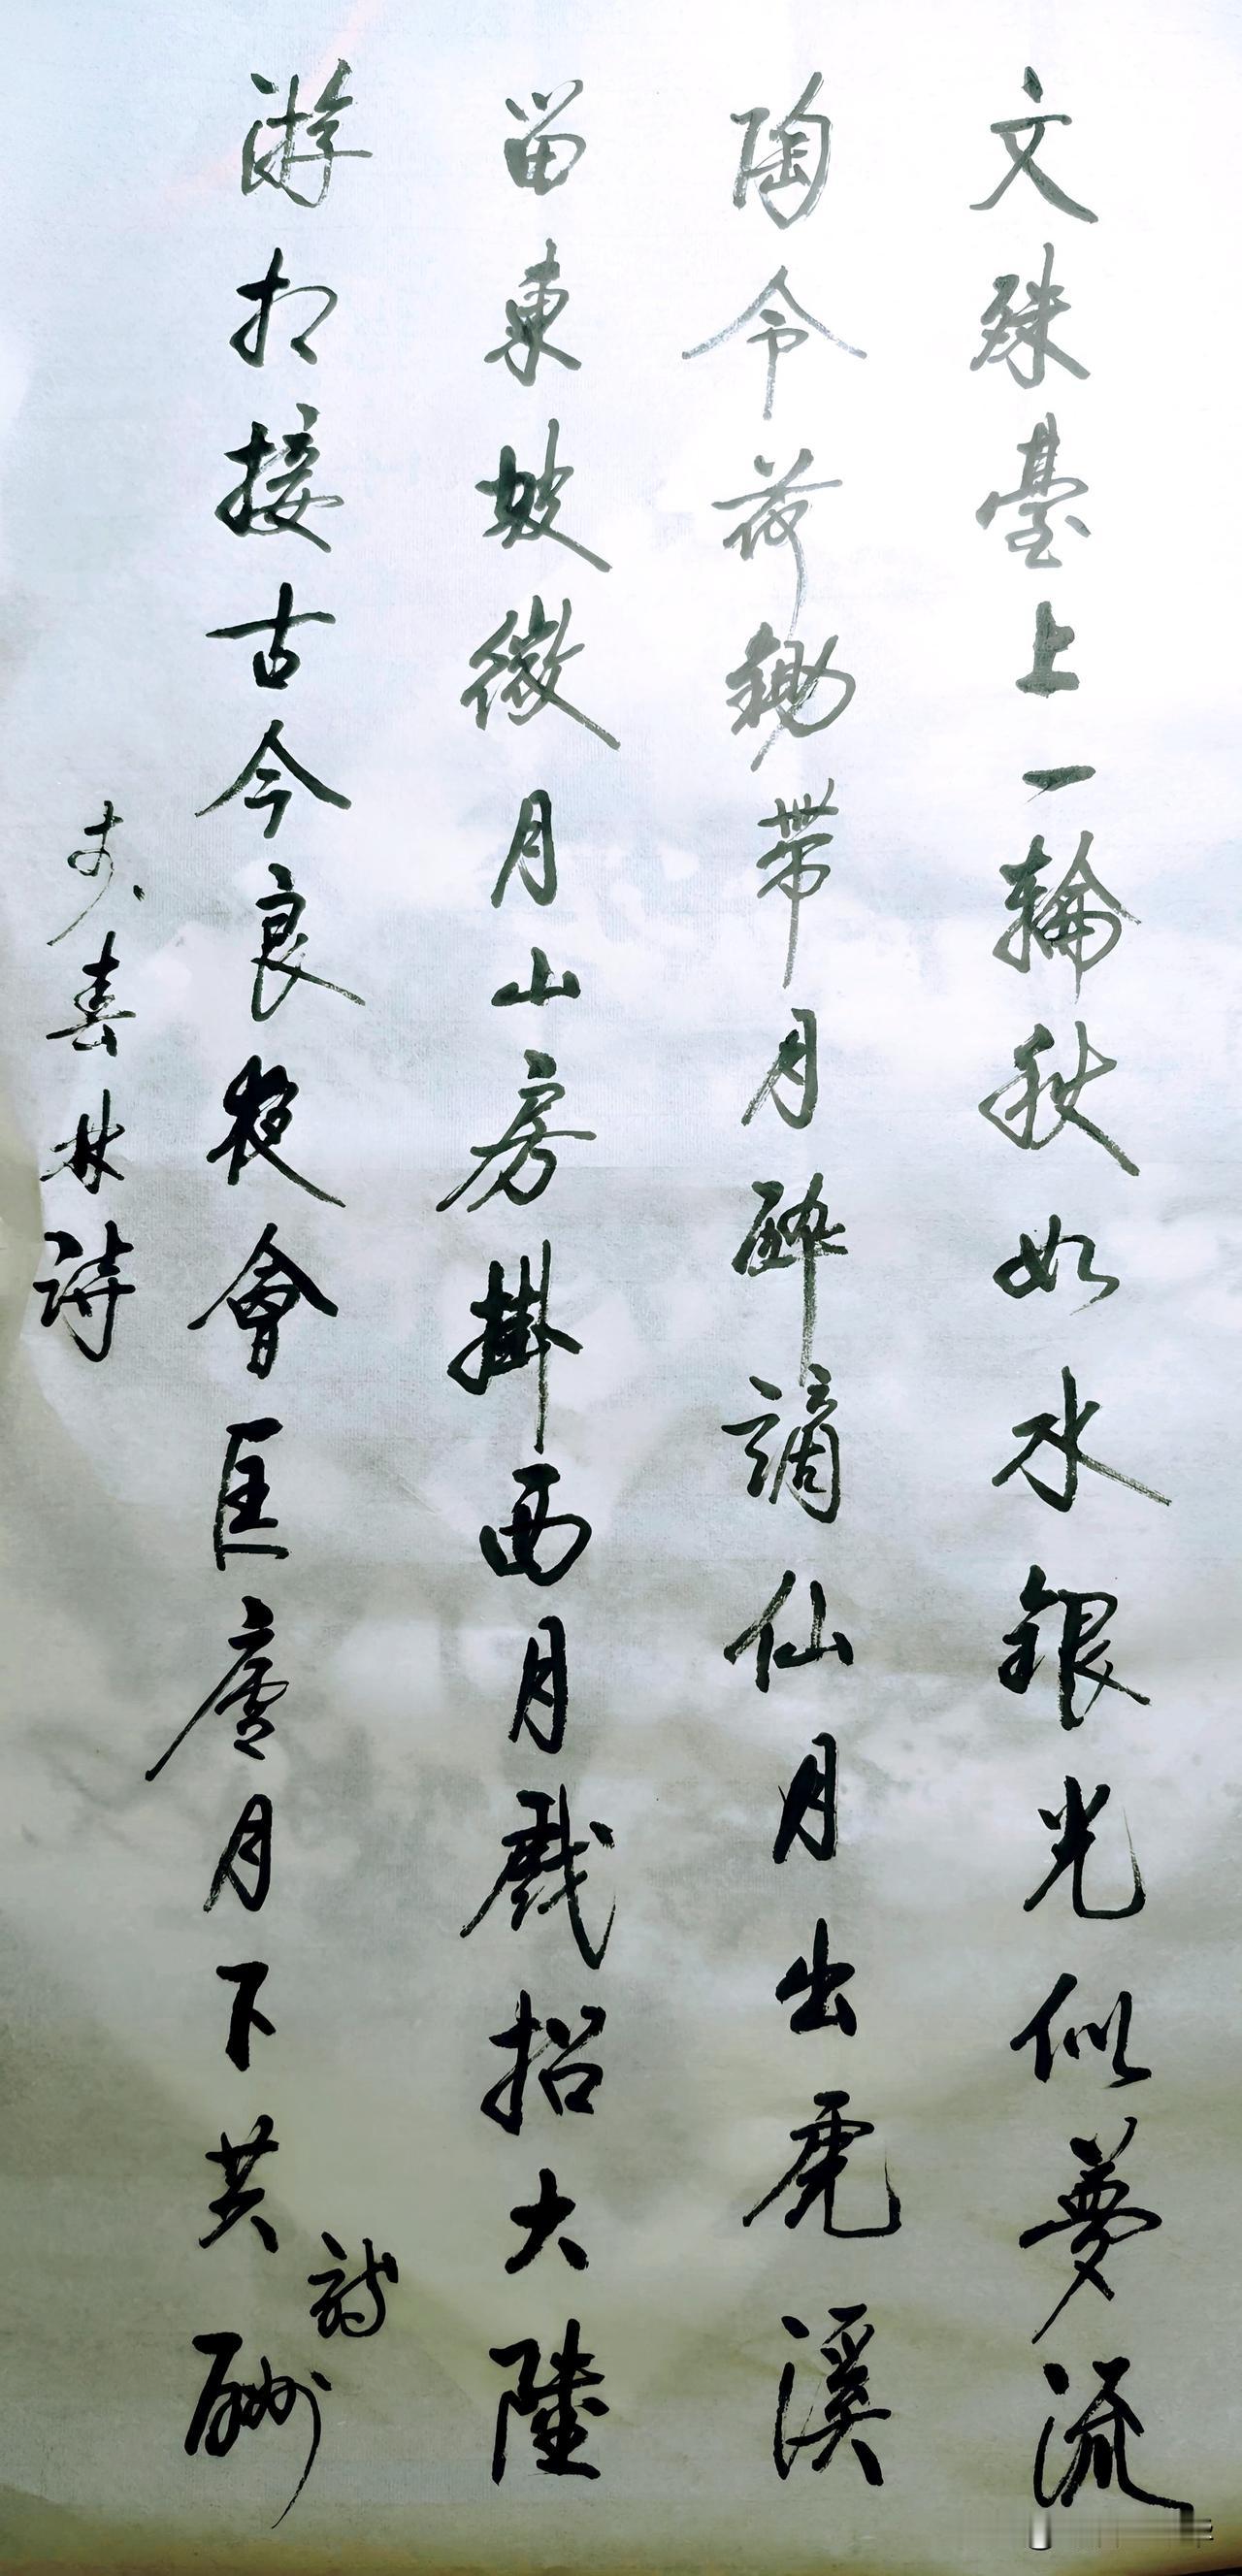 文殊臺上一輪秋如水銀光似夢流
陶令荷鋤帶月醉謫仙月出虎溪
留東坡微月山房掛西月戲招大陸
游相接古今良夜會匡廬月下共酬
詩
喜林詩